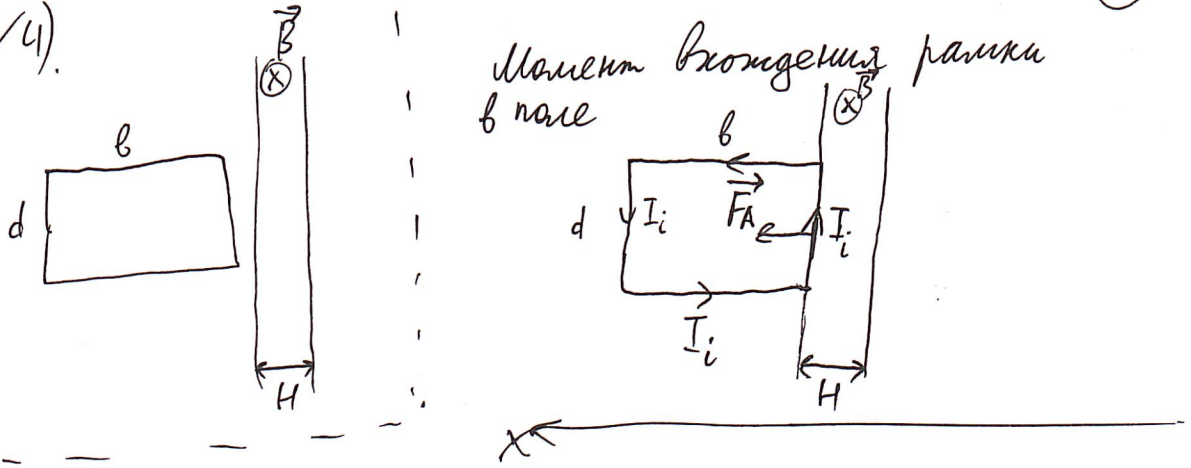 4).
B
Момент вхождения рамки
в поле
B
b
b
d
d
I_i
F_A
I_i
I_i
H
H
X